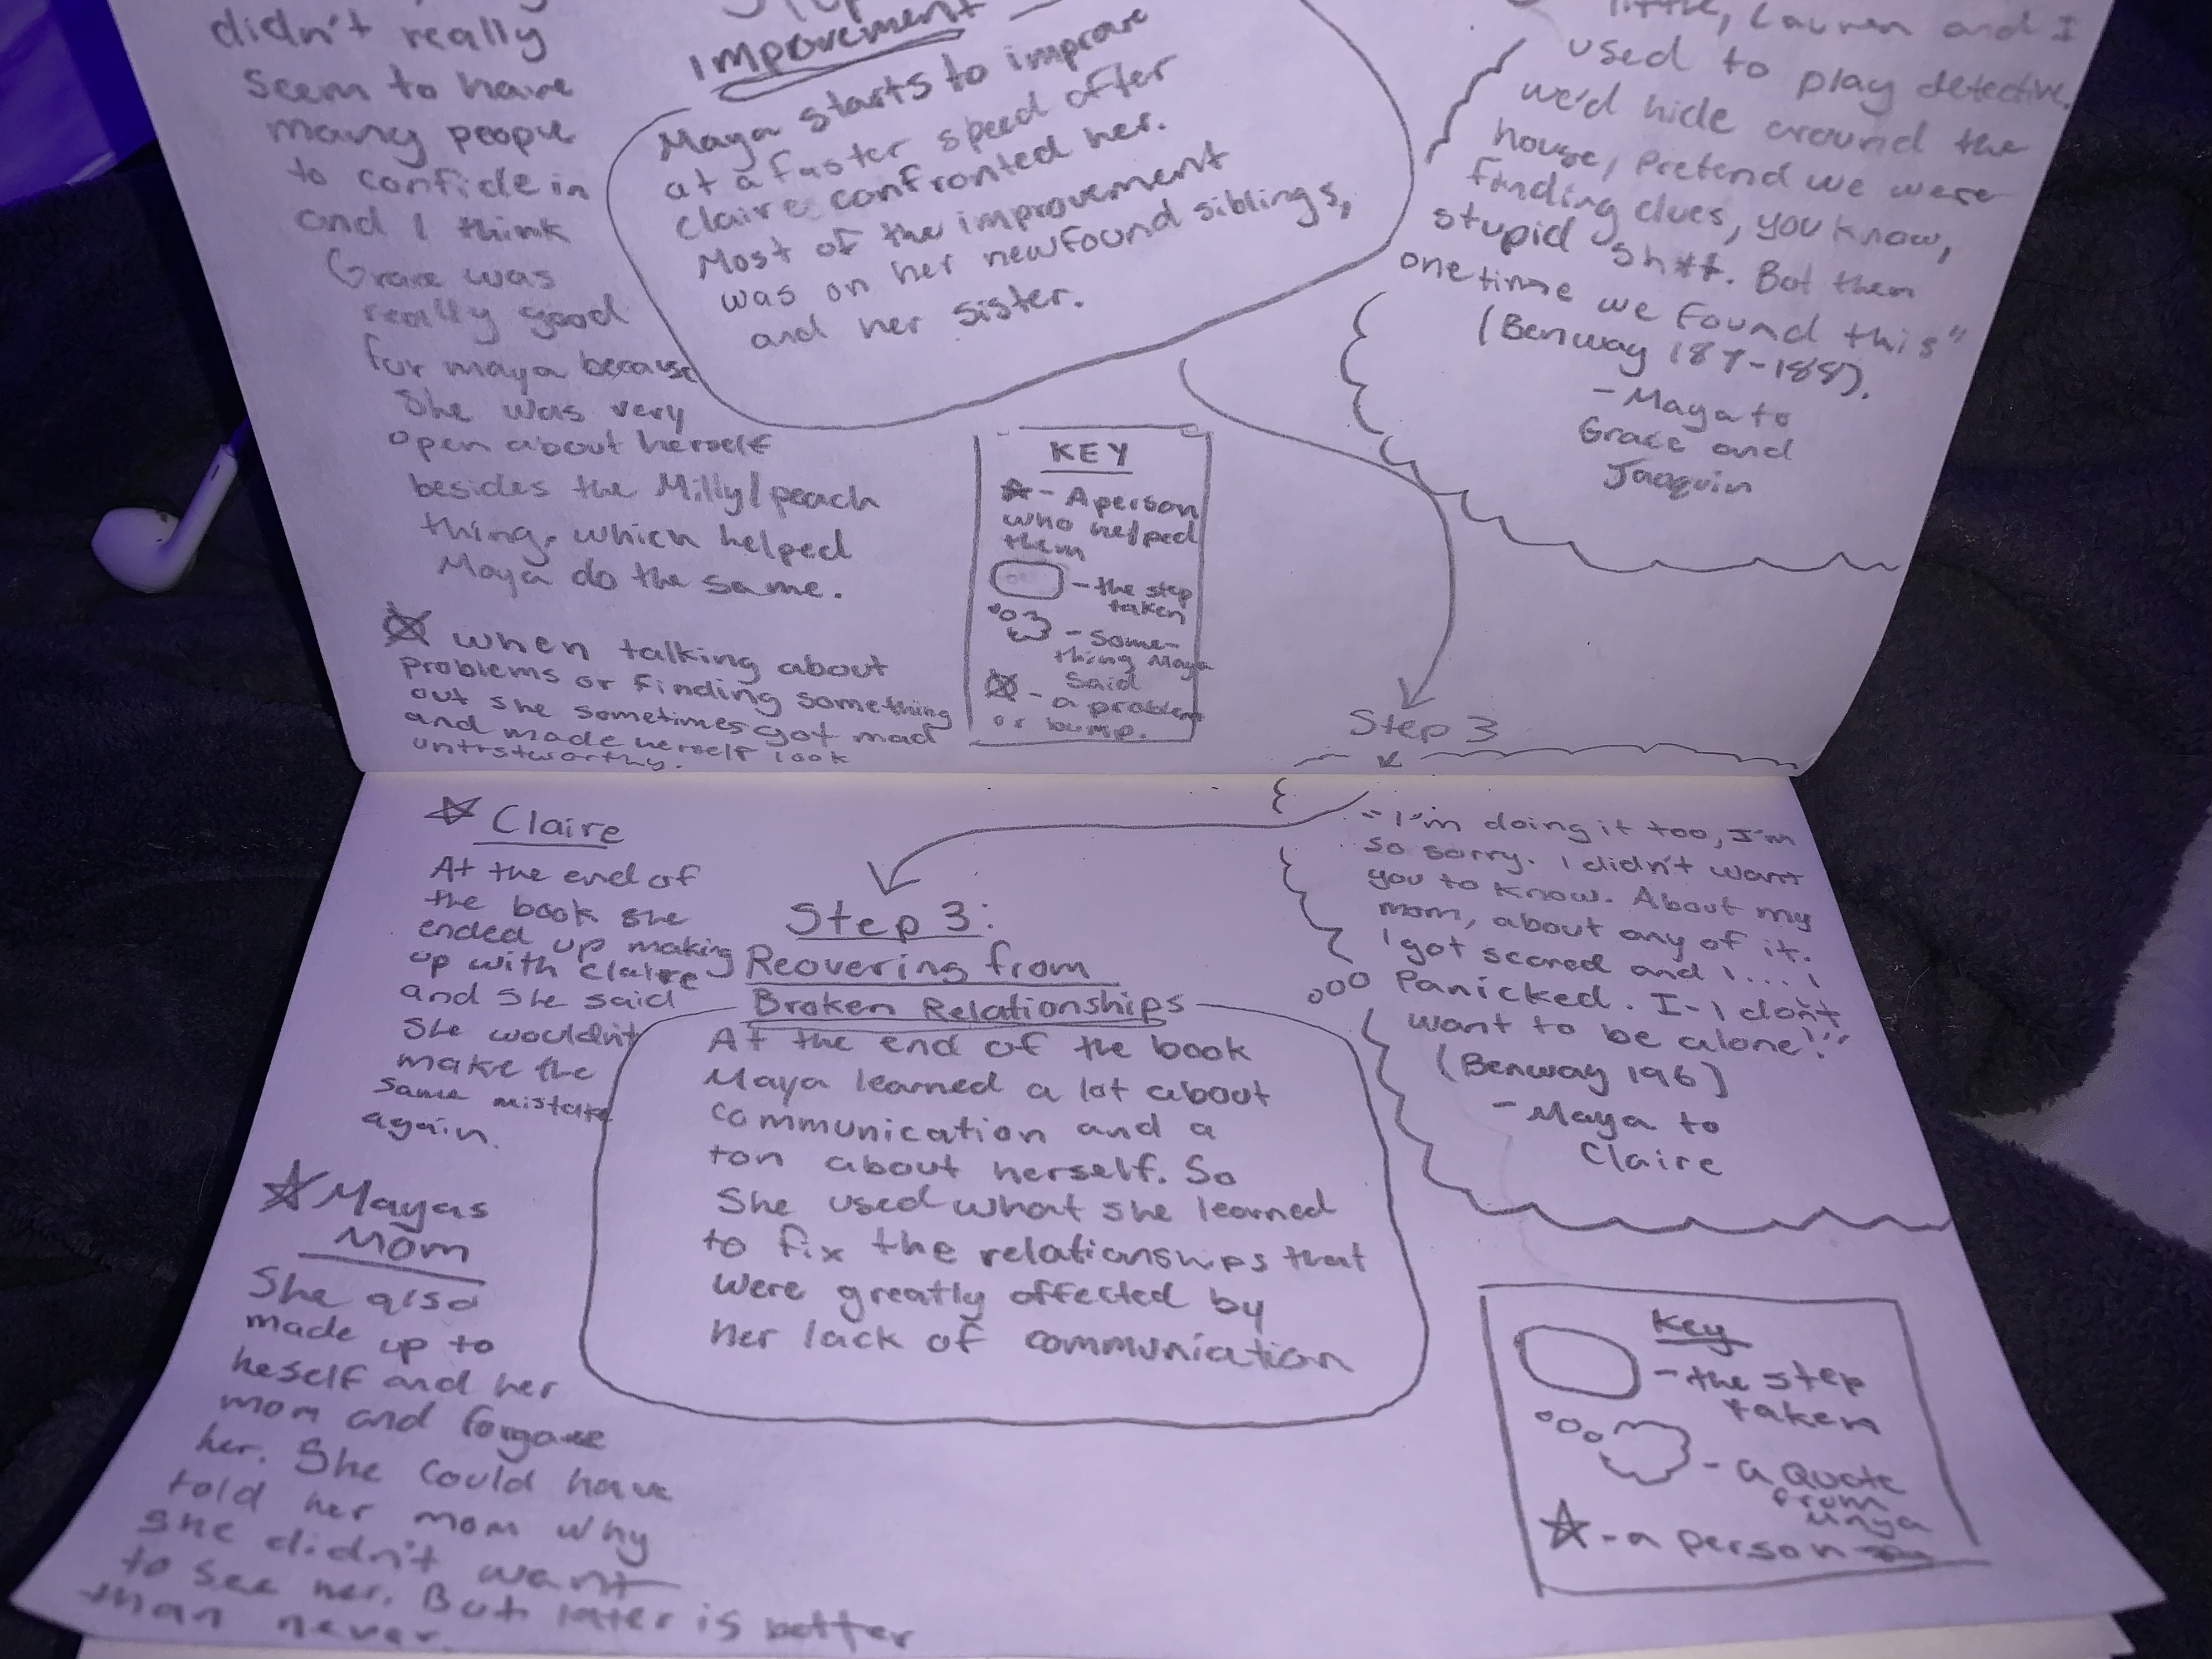 didn't really
seem to have
many people
to confide in
and I think
Grace was
really good
for maya because
She was very
open about herself
besides the Milly/peach
thing. which helped
Maya do the same.
when talking about
problems or finding something
out she sometimes got mad
and made herself look
untrstworthy.
Impovement
Maya starts to improve
at a faster speed after
Claire confronted her.
Most of the improvement
was on her newfound siblings,
and her sister.
KEY
- A person
who helped
them
- the step
taken
- Some-
thing Maya
Said
- a problem
or bump.
little, Lauren and I
used to play detective.
we'd hide around the
house, Pretend we were
finding clues, you know,
stupid sh**. But then
one time we found this"
(Benway 187-188).
- Maya to
Grace and
Jaoquin
Step 3
Claire
At the end of
the book she
ended up making
up with Claire
and She said
She wouldn't
make the
same mistake
again.
Mayas
Mom
She also
made up to
heself and her
mom and forgave
her. She could have
told her mom why
she didn't want
to see her. But later is better
than never.
Step 3:
Reovering from
Broken Relationships
At the end of the book
Maya learned a lot about
communication and a
ton about herself. So
She used what she learned
to fix the relationships that
were greatly affected by
her lack of communiation
"I'm doing it too, I'm
so sorry. I didn't want
you to know. About my
mom, about any of it.
I got scared and I.... I
Panicked. I-I don't
want to be alone!"
(Benway 196)
- Maya to
Claire
Key
- the step
taken
- a Quote
from
Maya
- a person